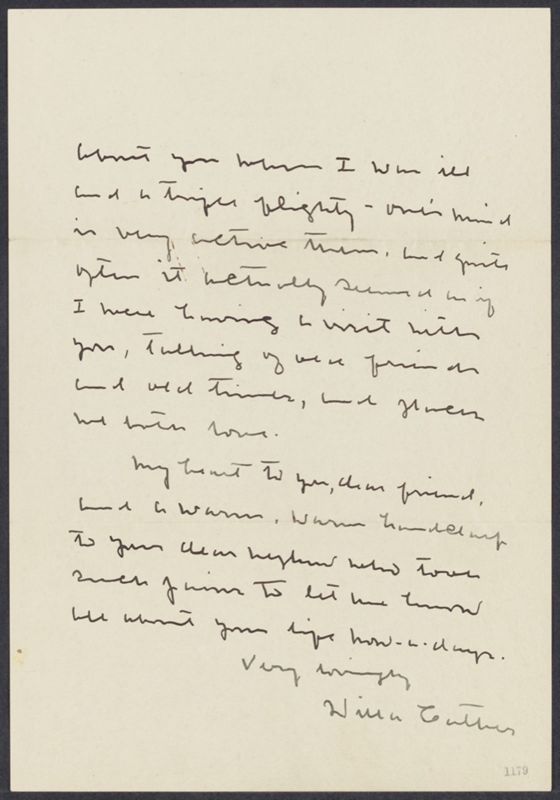 about you when I was ill
and a trifle flighty - one's mind
is very active then, and quite
often it actually seemed as if
I were having a visit with
you, talking of old friends
and old times, and places
we both love.
My heart to you, dear friend,
and a warm, warm handclasp
to your dear nephew who took
such pains to let me know
all about your life now-a-days.
Very lovingly
Willa Cather
1179